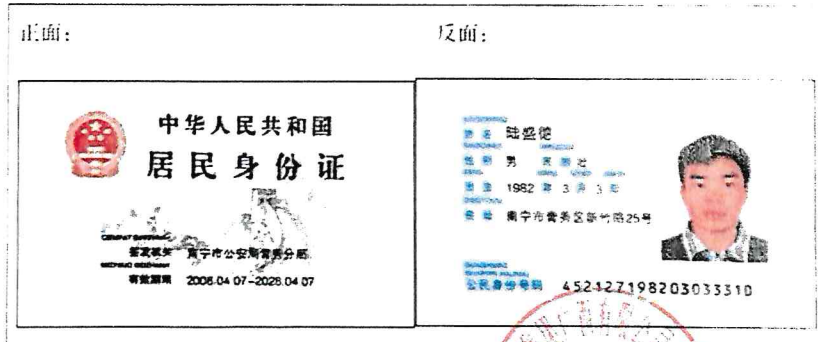 正面：
反面：
中华人民共和国
居民身份证
签发机关 南宁市公安局青秀分局
有效期限 2006.04.07-2026.04.07
姓名 陆盛德
性别 男 民族 壮
出生 1982 年 3 月 3 日
住址 南宁市青秀区新竹路25号
公民身份号码 452127198203033310